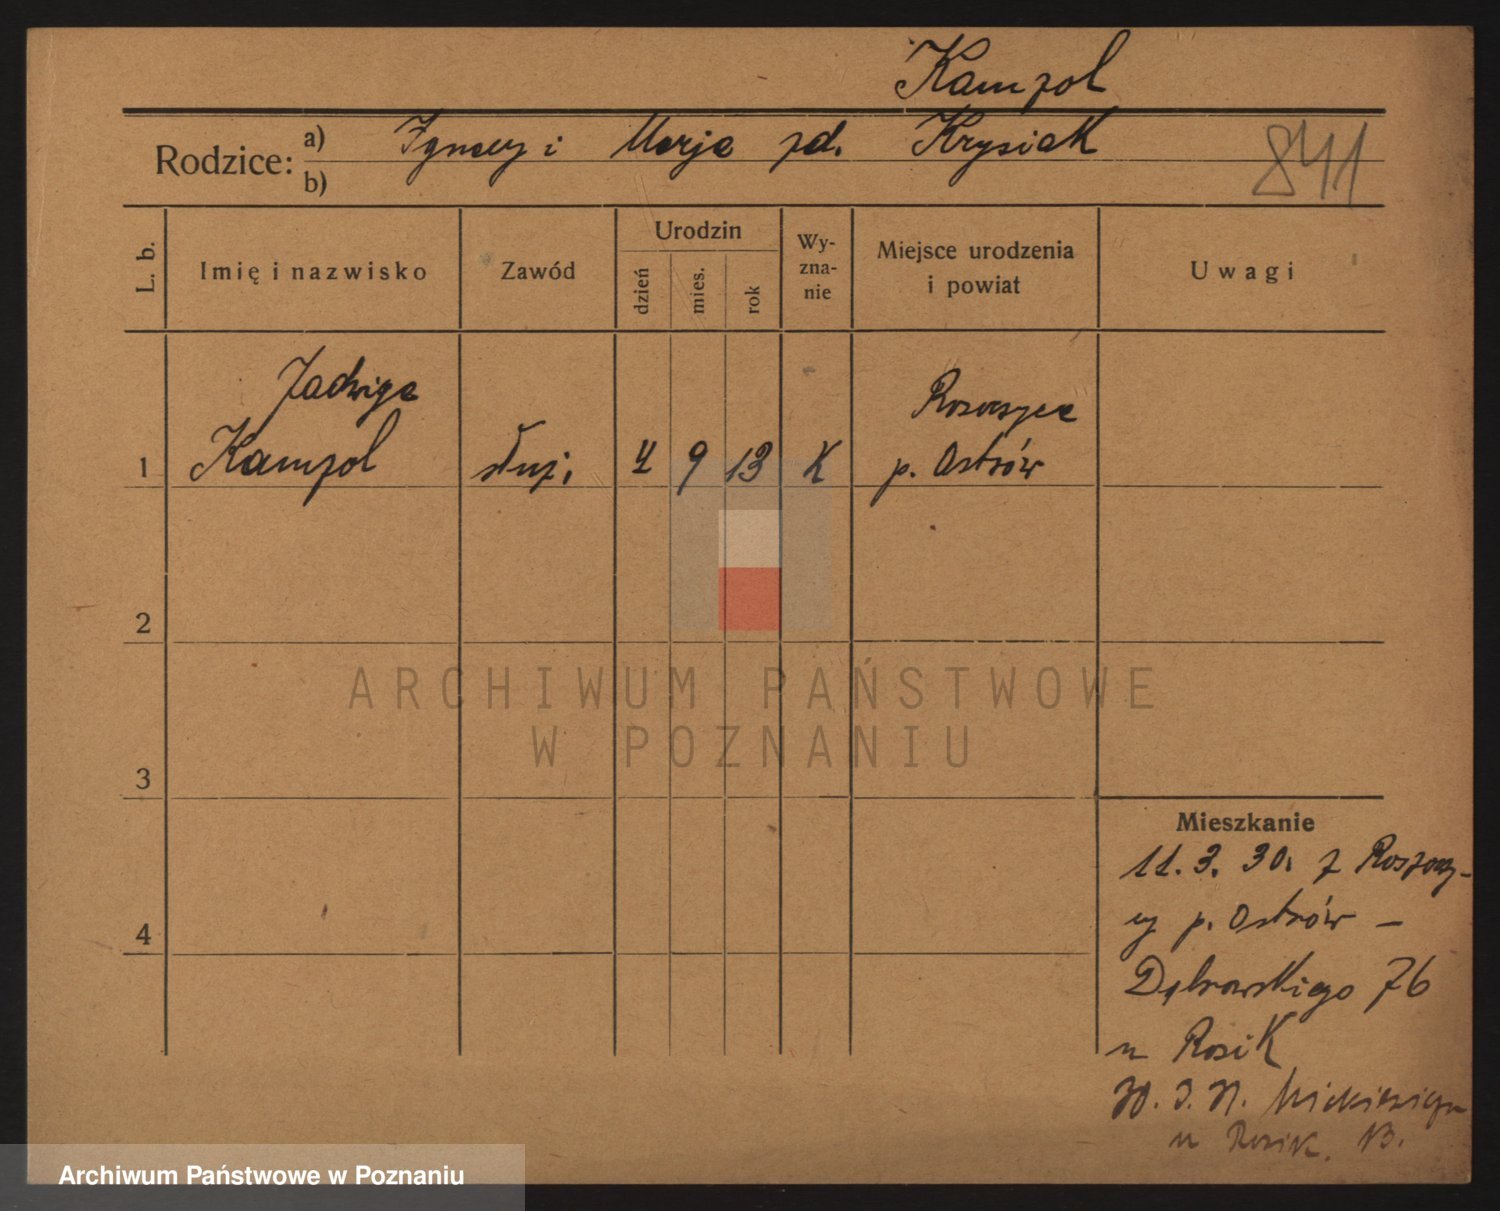 Kamzol
Rodzice: a) Ignacy i Marja zd. Krysiak
b)
841
L. b.
Imię i nazwisko
Zawód
Urodzin
dzień
mies.
rok
Wy-
zna-
nie
Miejsce urodzenia
i powiat
Uwagi
Jadwiga
Rososzyca
1 Kamzol służ. 4 9 13 K p. Ostrów
2
3
4
ARCHIWUM PAŃSTWOWE
W POZNANIU
Mieszkanie
11. 3. 30. z
p. Ostrów –
Dąbrowskiego 76
u Rosik
u Rosik. 13.
Archiwum Państwowe w Poznaniu